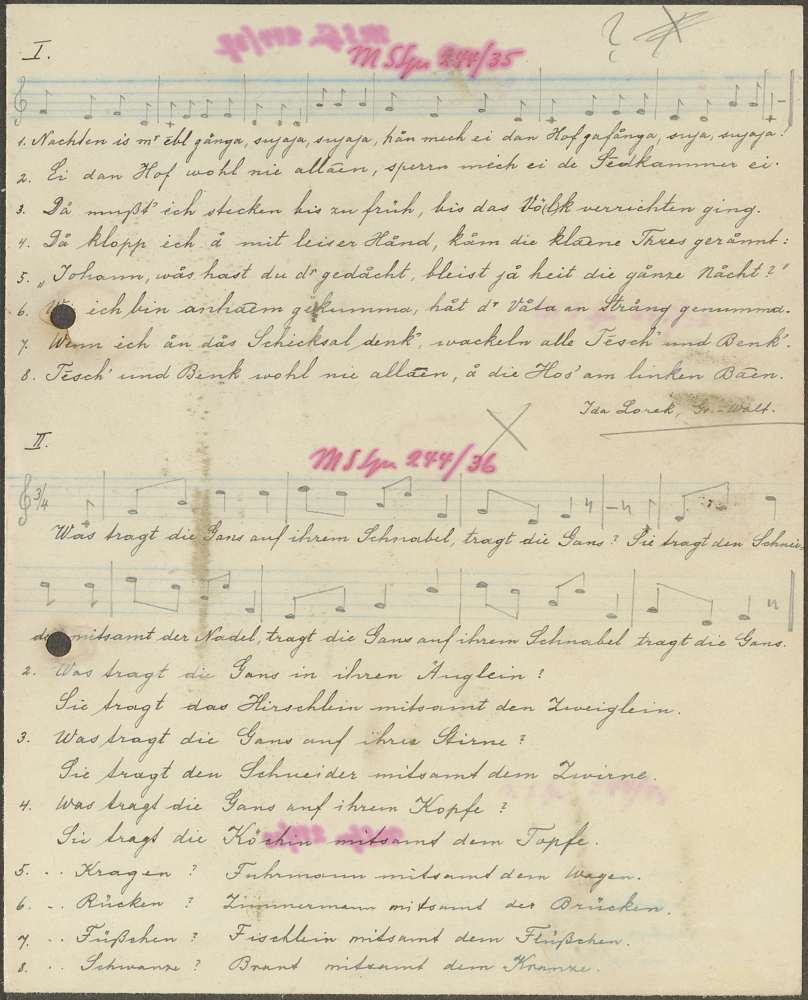 I.
M S Gu 244/35
1. Nachten is mr ebl gånga, sujaja, sujaja, hån mech ei dan Hof gafånga, suja, sujaja!
2. Ei dan Hof wohl nie allaen, sperrn mich ei de Stådkammer ei.
3. Då mußt' ich stecken bis zu früh, bis das Vö(l)k verrichten ging.
4. Då klopp ich å mit leiser Hånd, kåm die klaene Thres gerånnt:
5. „Johann, wås hast du dr gedåcht, bleist jå heit die gånze Nåcht?"
6. ich bin anhaem gekumma, håt dr Våta an Strång genumma.
7. Wenn ich ån dås Schicksal denk', wackeln alle Tesch' und Benk'.
8. Tesch' und Benk wohl nie allaen, å die Hos' am linken Baen.
Ida Lorek, Gr.-Walt.
II.
M S Gu 244/36
3/4
Was tragt die Gans auf ihrem Schnabel, tragt die Gans? Sie tragt den Schnei-
der mitsamt der Nadel, tragt die Gans auf ihrem Schnabel tragt die Gans.
2. Was tragt die Gans in ihren Äuglein?
Sie tragt das Hirschlein mitsamt den Zweiglein.
3. Was tragt die Gans auf ihre Stirne?
Sie tragt den Schneider mitsamt dem Zwirne.
4. Was tragt die Gans auf ihrem Kopfe?
Sie tragt die Köchin mitsamt dem Topfe.
5. .. Kragen? Fuhrmann mitsamt dem Wagen.
6. .. Rücken? Zimmermann mitsamt der Brücken.
7. .. Füßchen? Fischlein mitsamt dem Flüßchen.
8. .. Schwanze? Braut mitsamt dem Kranze.